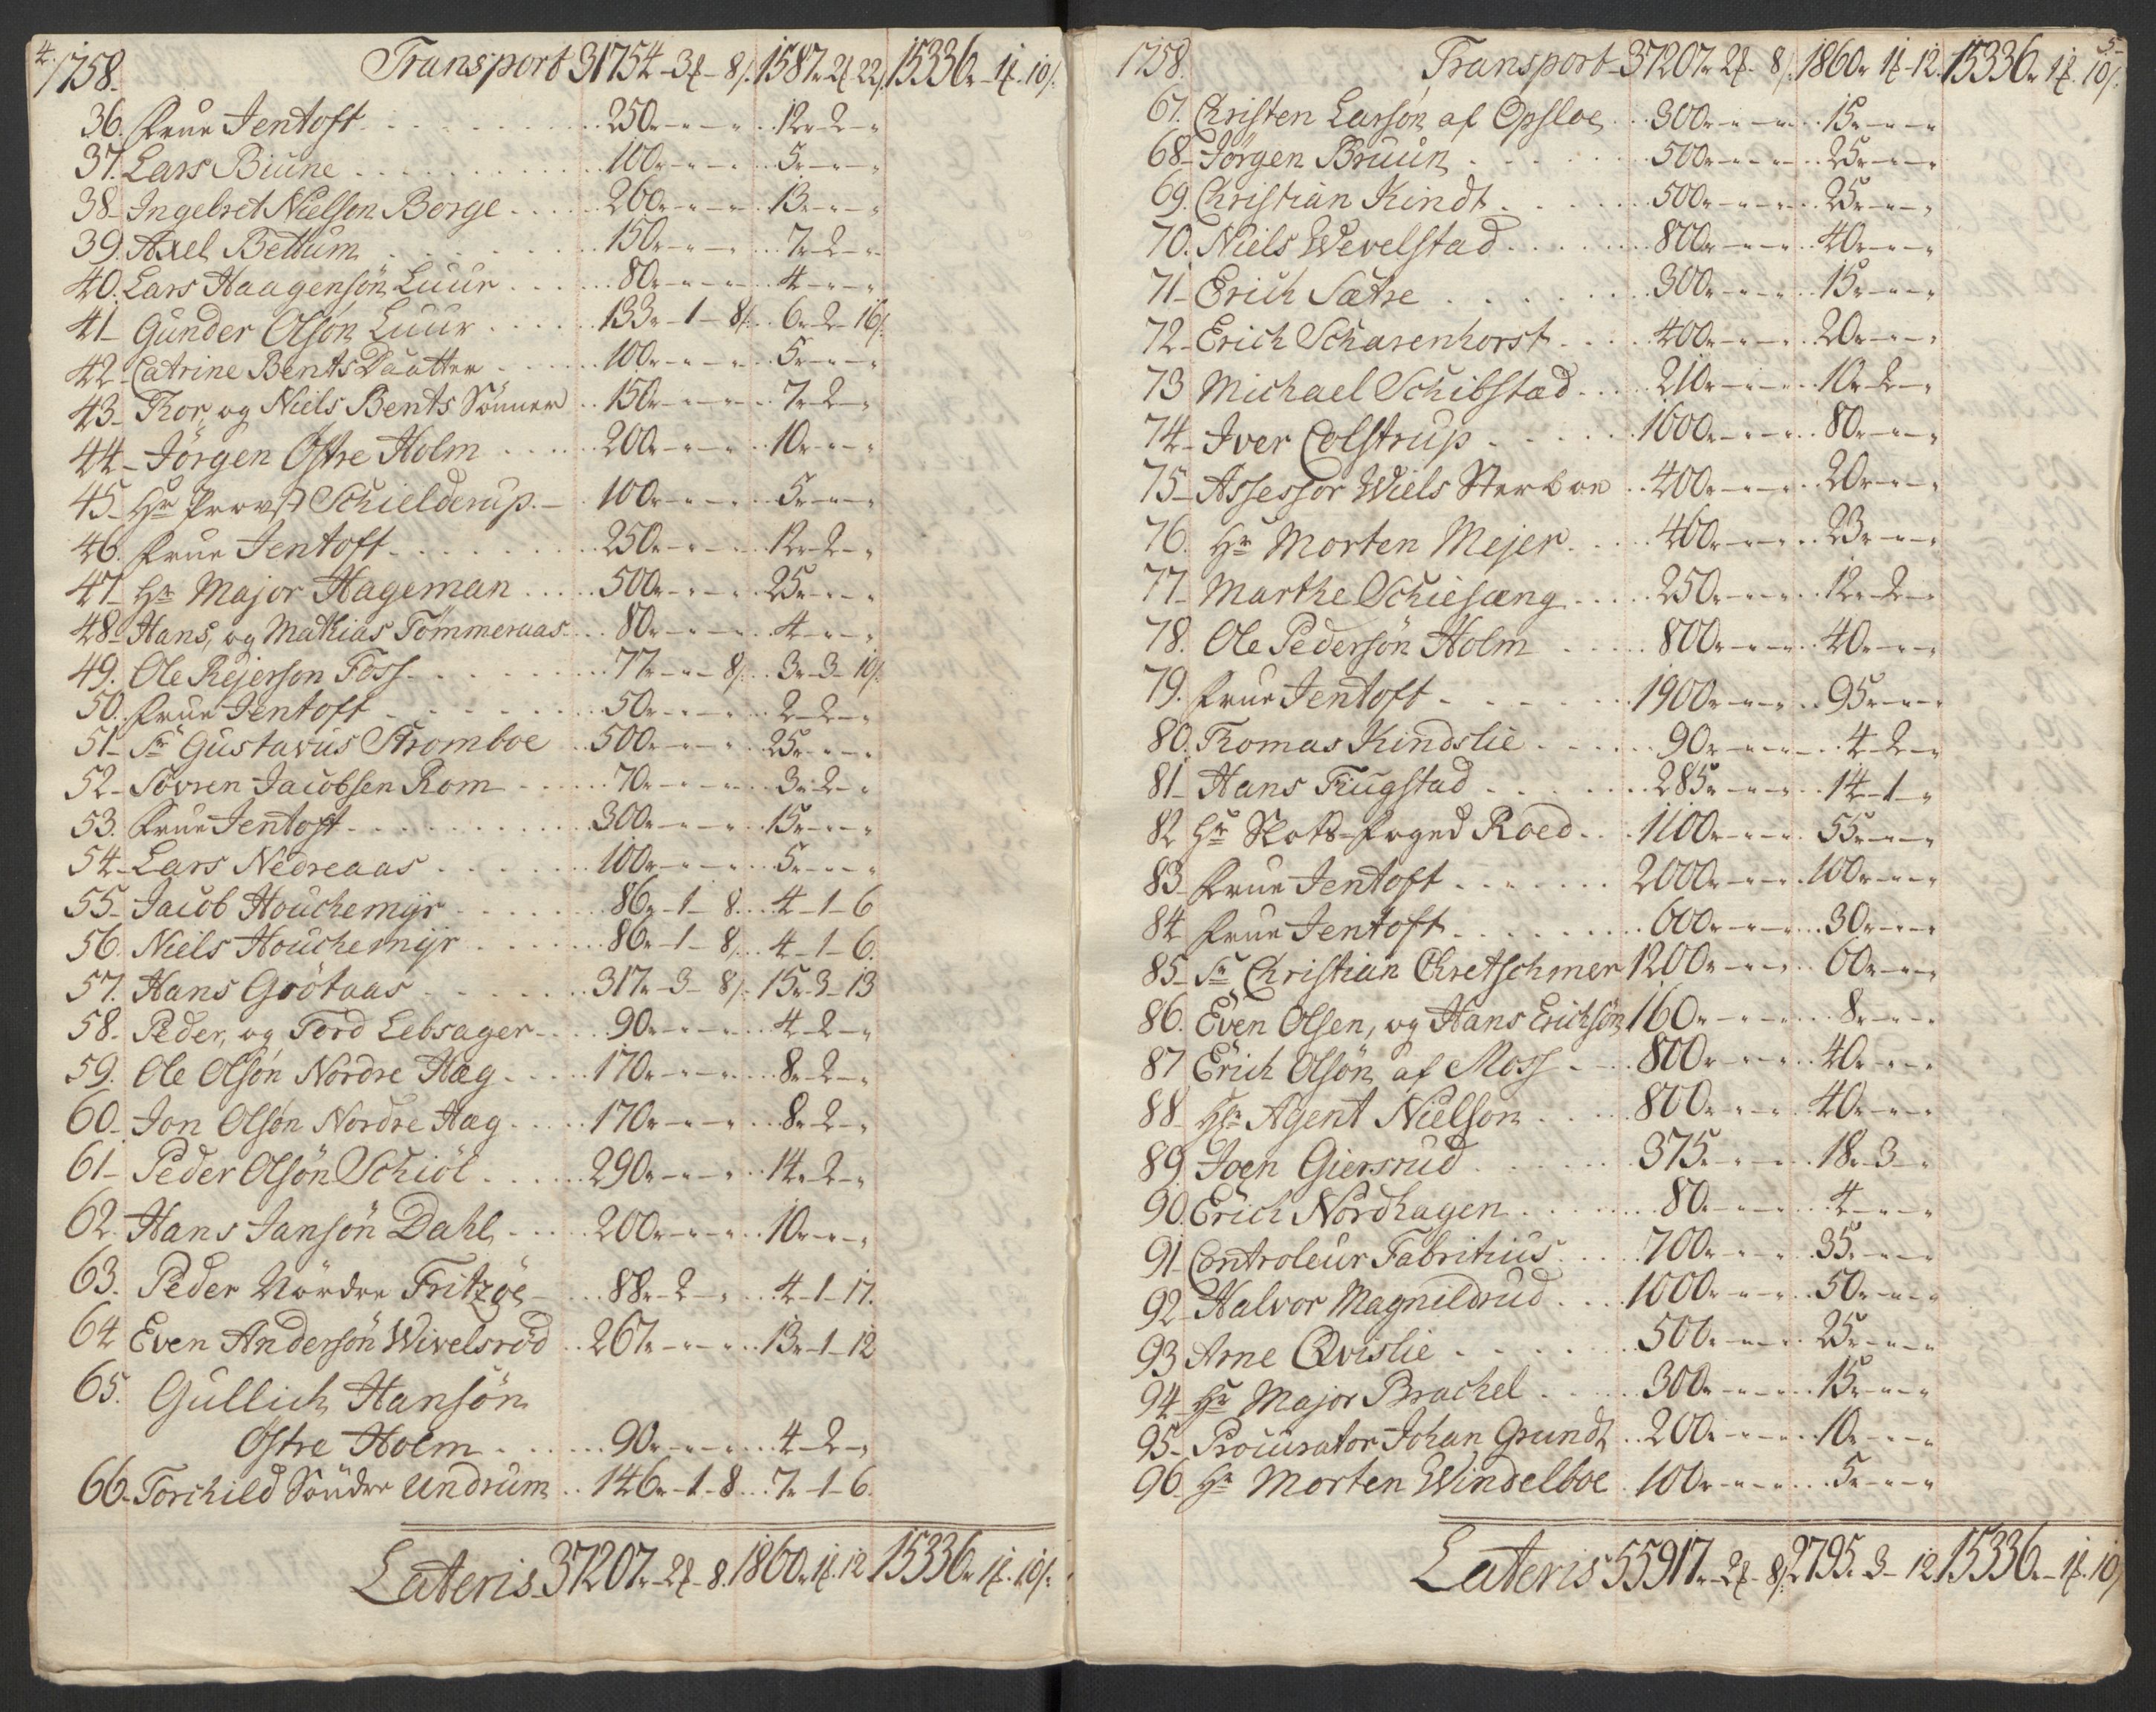 4.
1758. Transport 31754 - 3 - 8 1587 - 2 - 22 15336 - 1 - 10
36. Frue Jentoft 250 - " - " 12 - 2 - "
37. Lars Biune 100 - " - " 5 - " - "
38 - Ingebret Nielsøn Borge 260 - " - " 13 - " - "
39. Axel Bettum 150 - " - " 7 - 2 - "
40. Lars Haagensøn Luur 80 - " - " 4 - " - "
41 - Gunder Olsøn Luur 133 - 1 - 8 6 - 2 - 16
42 - Catrine Bents Daatter 100 - " - " 5 - " - "
43 - Thor, og Niels Bents Sønner 150 - " - " 7 - 2 - "
44 - Jörgen Östre Holm 200 - " - " 10 - " - "
45 - Hr Provst Schielderup 100 - " - " 5 - " - "
46. Frue Jentoft 250 - " - " 12 - 2 - "
47 - Hr Major Hageman 500 - " - " 25 - " - "
48 - Hans, og Mathias Tömmeraas 80 - " - " 4 - " - "
49. Ole Rejerson Foss 77 - " - 8 3 - 3 - 10
50. Frue Jentoft 50 - " - " 2 - 2 - "
51 - Sr Gustavus Stromboe 500 - " - " 25 - " - "
52 - Sövren Jacobsen Rom 70 - " - " 3 - 2 - "
53. Frue Jentoft 300 - " - " 15 - " - "
54 - Lars Nedreaas 100 - " - " 5 - " - "
55 - Jacob Houchemyr 86 - 1 - 8 4 - 1 - 6
56. Niels Houchemyr 86 - 1 - 8 4 - 1 - 6.
57. Hans Grötaas 317 - 3 - 8 15 - 3 - 13
58. Peder, og Tord Lebsager 90 - " - " 4 - 2 - "
59. Ole Olsøn Nordre Hæg 170 - " - " 8 - 2 - "
60 - Jon Olsøn Nordre Hæg 170 - " - " 8 - 2 - "
61 - Peder Olsön Schiöl 290 - " - " 14 - 2 - "
62. Hans Jansön Dahl 200 - " - " 10 - " - "
63. Peder Nördre Fritzöe 88 - 2 - " 4 - 1 - 17.
64 Even Andersön Wivelsröd 267 - " - " 13 - 1 - 12
65. Gullich Hansön
Östre Holm 90 - " - " 4 - 2 - "
66 - Torchild Söndre Undrum 146 - 1 - 8 7 - 1 - 6.
Lateris 37207 - 2 - 8. 1860 - 1 - 12 15336 - 1 - 10
5
1758. Transport 37207 - 2 - 8 1860 - 1 - 12. 15336 - 1 - 10
67. Christen Larsön af Opsloe 300 - " - " 15 - " - "
68 - Jörgen Bruun 500 - " - " 25 - " - "
69. Christian Kindt 500 - " - " 25 - " - "
70. Niels Wevelstad 800 - " - " 40 - " - "
71 - Erich Sætre 300 - " - " 15 - " - "
72 - Erich Scharenhorst 400 - " - " 20 - " - "
73 Michael Schibstad 210 - " - " 10 - 2 - "
74 - Iver Colstrup 1600 - " - " 80 - " - "
75 - Assessor Wiels Sterboe 400 - " - " 20 - " - "
76. Hr Morten Mejer 460 - " - " 23 - " - "
77 - Marthe Schiesæng 250 - " - " 12 - 2 - "
78. Ole Pedersön Holm 800 - " - " 40 - " - "
79. Frue Jentoft 1900 - " - " 95 - " - "
80. Thomas Kindslie 90 - " - " 4 - 2 - "
81 - Hans Frugstad 285 - " - " 14 - 1 - "
82 Hr Slots-Foged Roed 1100 - " - " 55 - " - "
83 - Frue Jentoft 2000 - " - " 100 - " - "
84 Frue Jentoft 600 - " - " 30 - " - "
85 - Sr Christian Chretschmer 1200 - " - " 60 - " - "
86. Even Olsen, og Hans Erichsön 160 - " - " 8 - " - "
87 Erich Olsön af Moss 800 - " - " 40 - " - "
88 - Hr Agent Nielson 800 - " - " 40 - " - "
89. Joen Giersrud 375 - " - " 18 - 3 - "
90. Erich Nordhagen 80 - " - " 4 - " - "
91 - Controleur Fabritius 700 - " - " 35 - " - "
92 - Halvor Magnildrud 1000 - " - " 50 - " - "
93 Arne Qvislie 500 - " - " 25 - " - "
94 - Hr Major Brachel 300 - " - " 15 - " - "
95 - Procurator Johan Grundt 200 - " - " 10 - " - "
96. Hr Morten Windelboe 100 - " - " 5 - " - "
Lateris 55917 - 2 - 8 2795 - 3 - 12 15336 - 1 - 10